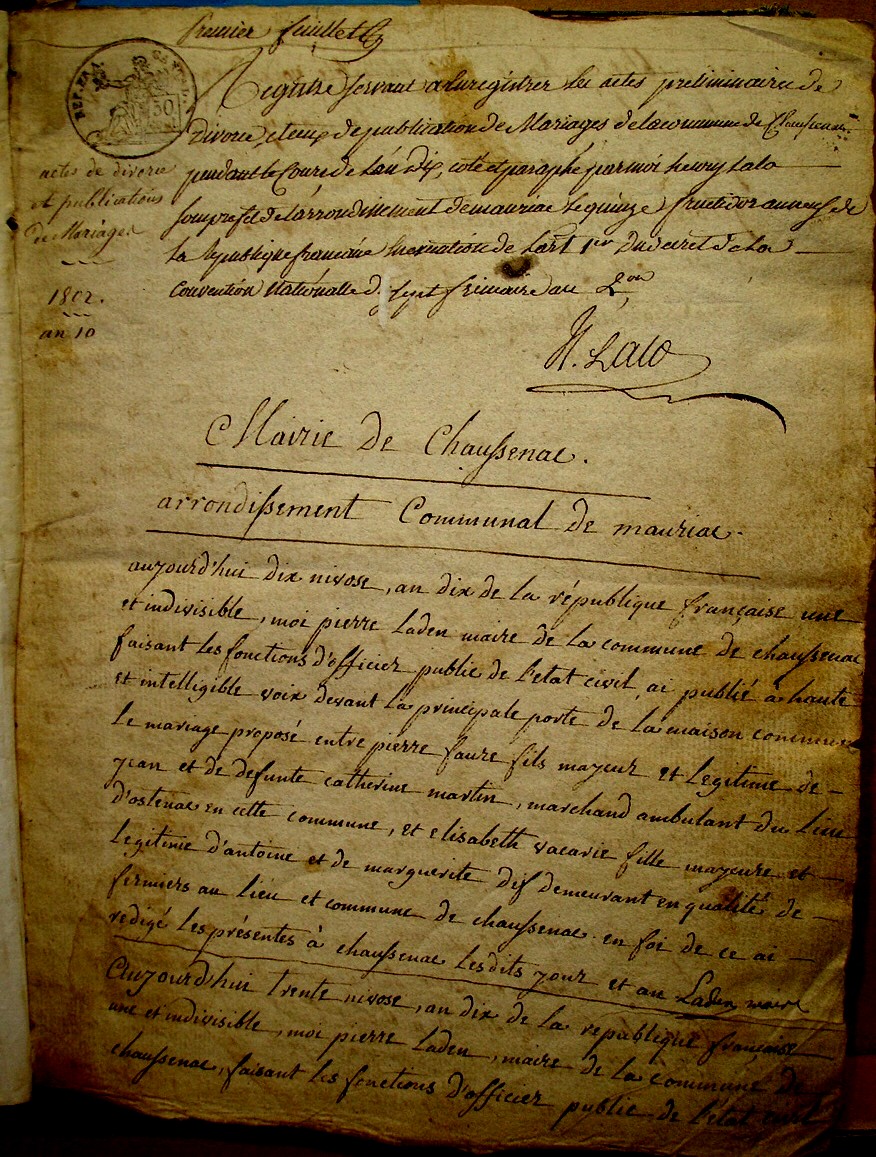 Premier feuillet
REP. FRA.
50
Registre servant a Enregistrer les actes préliminaire de
Divorce, et ceux de publication de Mariages de la commune de Chaussenac
pendant le Cours de L'an dix, coté et paraphé par moi henry Lalo
Sousprefet de L'arrondissement de mauriac Le quinze fructidor an neuf de
La République francaise En exécution de L'art 1er du decret de La
Convention Nationalle du sept frimaire an 2
actes de divorce
et publications
de Mariages
1802.
an 10
H. Lalo
Mairie de Chaussenac.
arrondissement Communal de mauriac.
aujourd'hui dix nivose, an dix de la république française une
et indivisible, moi pierre Laden maire de la commune de chaussenac
faisant les fonctions d'officier public de l'etat civil, ai publié à haute
et intelligible voix devant la principale porte de la maison commune
le mariage proposé entre pierre faure fils mayeur et legitime de
jean et de defunte catherine martin, marchand ambulant du lieu
d'ostenac en cette commune, et elisabeth vacarie fille mayeure et
legitime d'antoine et de marguerite dif demeurant en qualité de
fermiers au lieu et commune de chaussenac. en foi de ce ai
redigé les présentes à chaussenac lesdits jour et an Laden maire
Aujourd'hui trente nivose, an dix de la republique française
une et indivisible, moi pierre Laden, maire de la commune de
chaussenac, faisant les fonctions d'officier public de l'etat civil